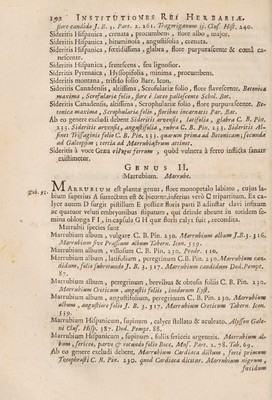 192 INSTITUTIONES REI HERBARIÆ.
flore candido J. B. 3. Part. 2. 261. Tragoriganum ij. Clus. Hist. 240.
Sideritis Hispanica, crenata, procumbens, flore albo, major.
Sideritis Hispanica, bituminosa, angustifolia, crenata.
Sideritis Hispanica, fœtidissima, glabra, flore purpurascente & comâ canescente.
Sideritis Hispanica, frutescens, seu lignosior.
Sideritis Pyrenaica, Hyssopifolia, minima, procumbens.
Sideritis montana, trifido folio Barr. Icon.
Sideritis Canadensis, altissima, Scrofulariæ folio, flore flavescente. Betonica
maxima, Scrofulariæ folio, flore è luteo pallescente Schol. Bot.
Sideritis Canadensis, altissima, Scrophulariæ folio, flore purpurascente. Betonica
maxima, Scrophulariæ folio, floribus incarnatis Par. Bat.
Ab eo genere excludi debent Sideritis arvensis, latifolia, glabra C. B. Pin.
233. Sideritis arvensis, angustifolia, rubra C. B. Pin. 233. Sideritis Alsines Trissaginis folio C. B. Pin. 233. quarum prima ad Betonicam; secunda
ad Galeopsim; tertia ad Marrubiastrum attinet.
Sideritis à voce Græca ferrum, quod vulnera à ferro inflicta sanare
existimetur.
GENUS II.
Marrubium. Marrube.
MARRUBIUM est planta genus, flore monopetalo labiato, cujus labium superius A surrectum est & bicorne: inferius verò C tripartitum. Ex calyce
Marrubii species sunt
Marrubium album, vulgare C. B. Pin. 230. Marrubium album J. B. 3. 316.
Marrubium album, villosum C. B. Pin. 230. Prodr. 110.
Marrubium album, latifolium, peregrinum C. B. Pin. 230. Marrubium candidum,
87.
Marrubium album, peregrinum, brevibus & obtusis foliis C. B. Pin. 230.
Marrubium Creticum, angustis foliis, inodorum Eyst.
Marrubium album, angustifolium, peregrinum C. B. Pin. 230. Marrubium
album, angustiore folio J. B. 3. 317. Marrubium Creticum Tabern. Icon.
539.
Marrubium Hispanicum, supinum, calyce stellato & aculeato. Alyssum Galeni Clus. Hisp. 387. Dod. Pempt. 88.
Marrubium Hispanicum, supinum, foliis sericeis argenteis. Marrubium album,
Ab eo genere excludi debent, Marrubium Cardiaca dictum, fortè primum
Theophrasti C. B. Pin. 230. quod Cardiaca dicitur. Marrubium nigrum,
fœtidum